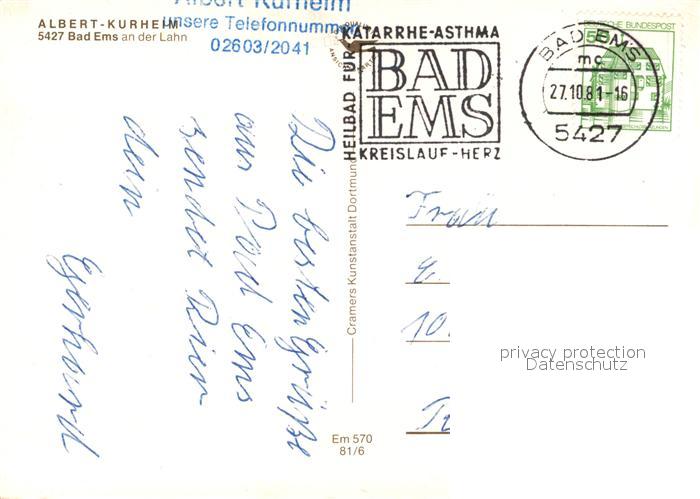 ALBERT-KURHEIM
5427 Bad Ems an der Lahn
Albert Kurheim
unsere Telefonnummer
02603/2041
Die besten Grüße
aus Bad Ems
sendet Dir
dein
Gerhard
Em 570
81/6
Cramers Kunstanstalt Dortmund
HEILBAD FÜR
KATARRHE-ASTHMA
BAD
EMS
KREISLAUF-HERZ
BAD EMS
mc
27.10.81-16
5427
DEUTSCHE BUNDESPOST
Frau
E.
10.
privacy protection
Datenschutz